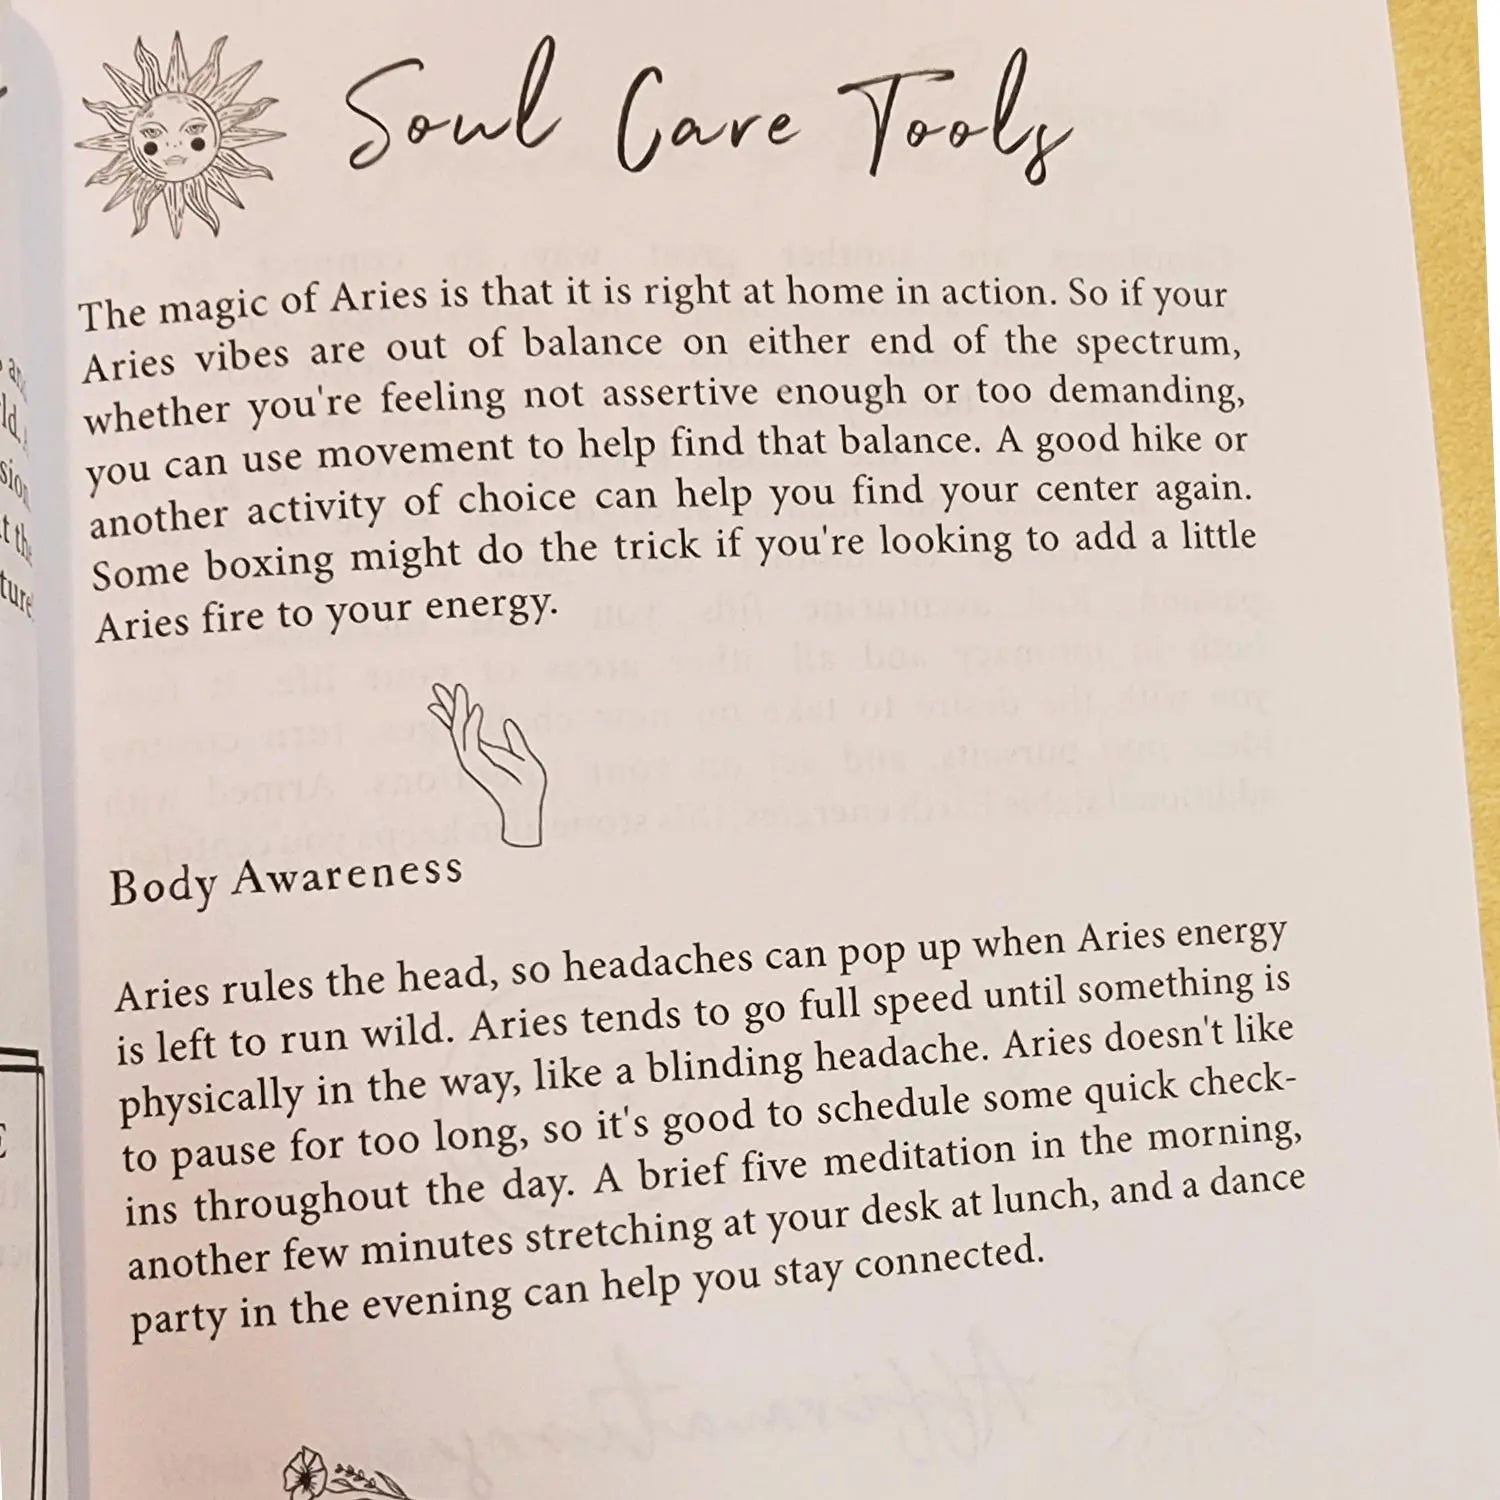 Soul Care Tools
The magic of Aries is that it is right at home in action. So if your
Aries vibes are out of balance on either end of the spectrum,
whether you're feeling not assertive enough or too demanding,
you can use movement to help find that balance. A good hike or
another activity of choice can help you find your center again.
Some boxing might do the trick if you're looking to add a little
Aries fire to your energy.
Body Awareness
Aries rules the head, so headaches can pop up when Aries energy
is left to run wild. Aries tends to go full speed until something is
physically in the way, like a blinding headache. Aries doesn't like
to pause for too long, so it's good to schedule some quick check-
ins throughout the day. A brief five meditation in the morning,
another few minutes stretching at your desk at lunch, and a dance
party in the evening can help you stay connected.